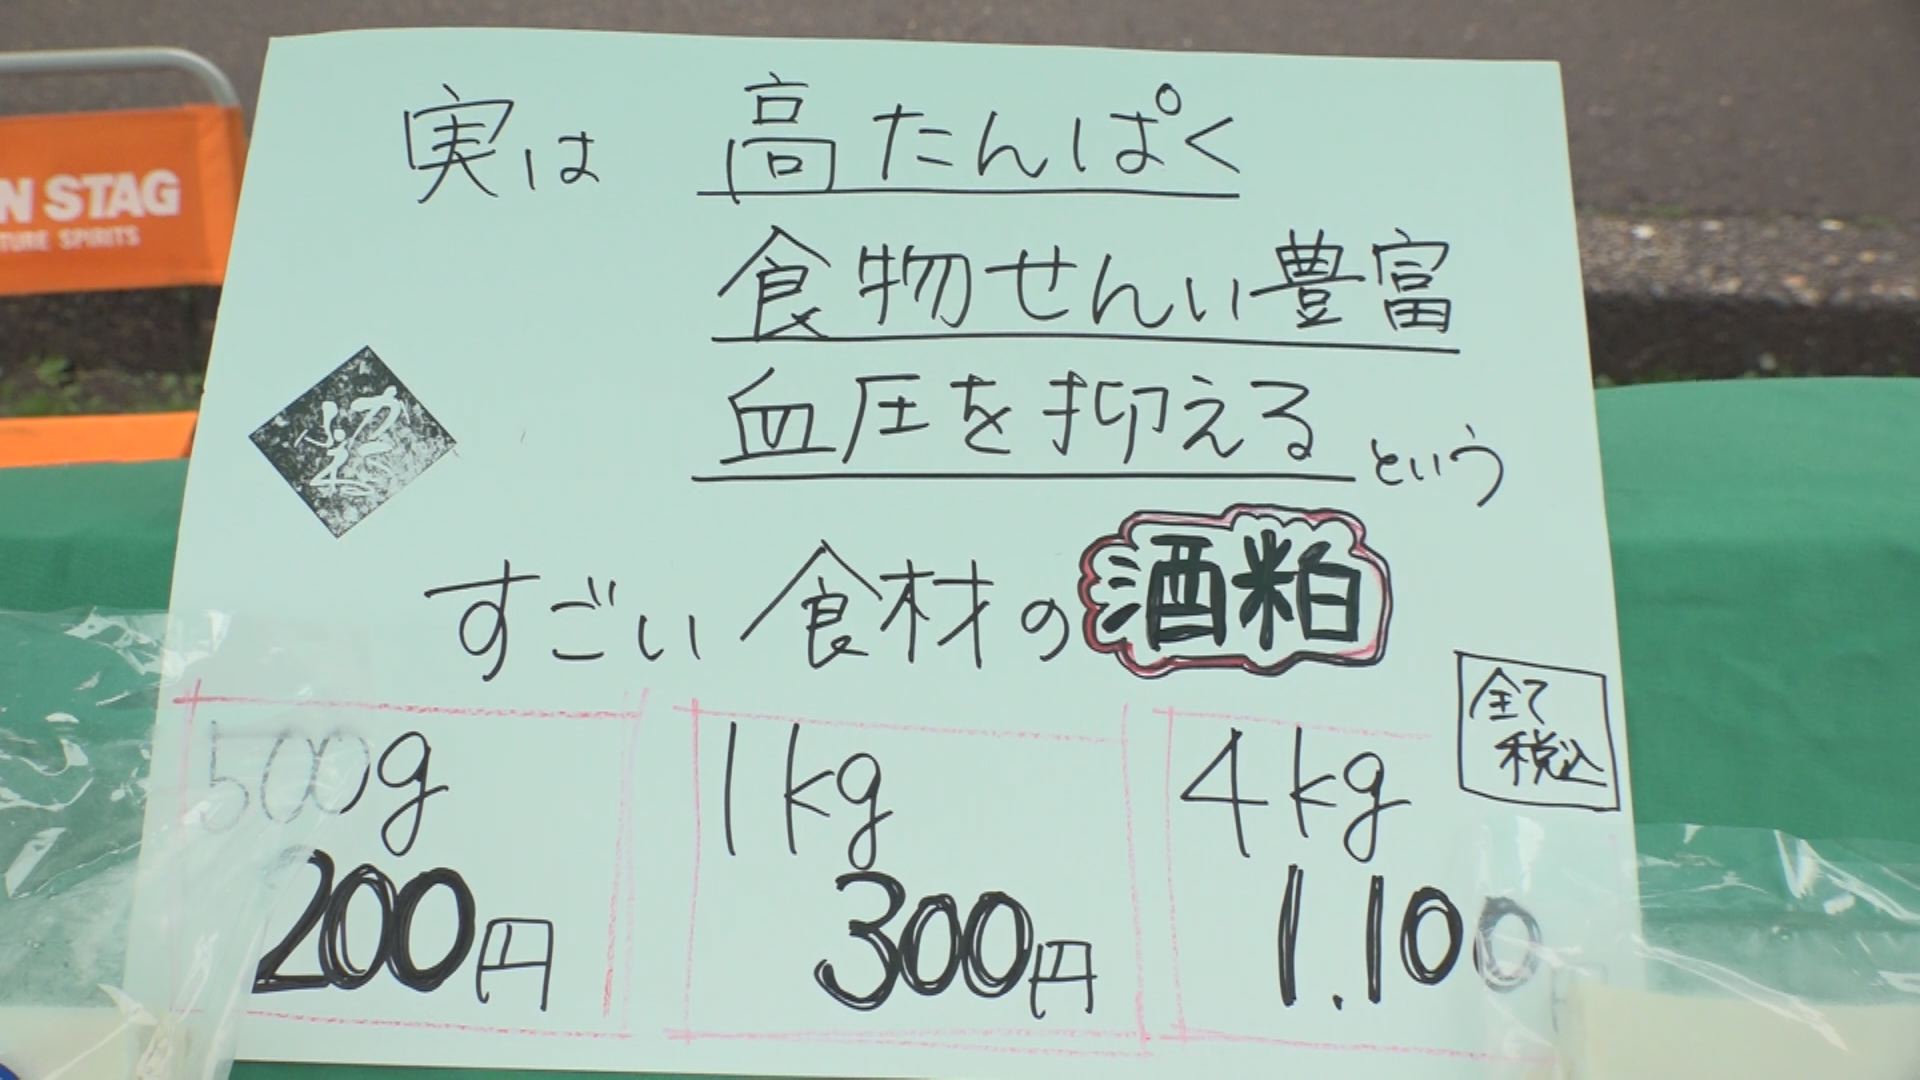 N STAG
TURE SPIRITS
実は 高たんぱく
食物せんい豊富
血圧を抑える という
すごい食材の酒粕
全て
税込
500g
200円
1kg
300円
4kg
1.100